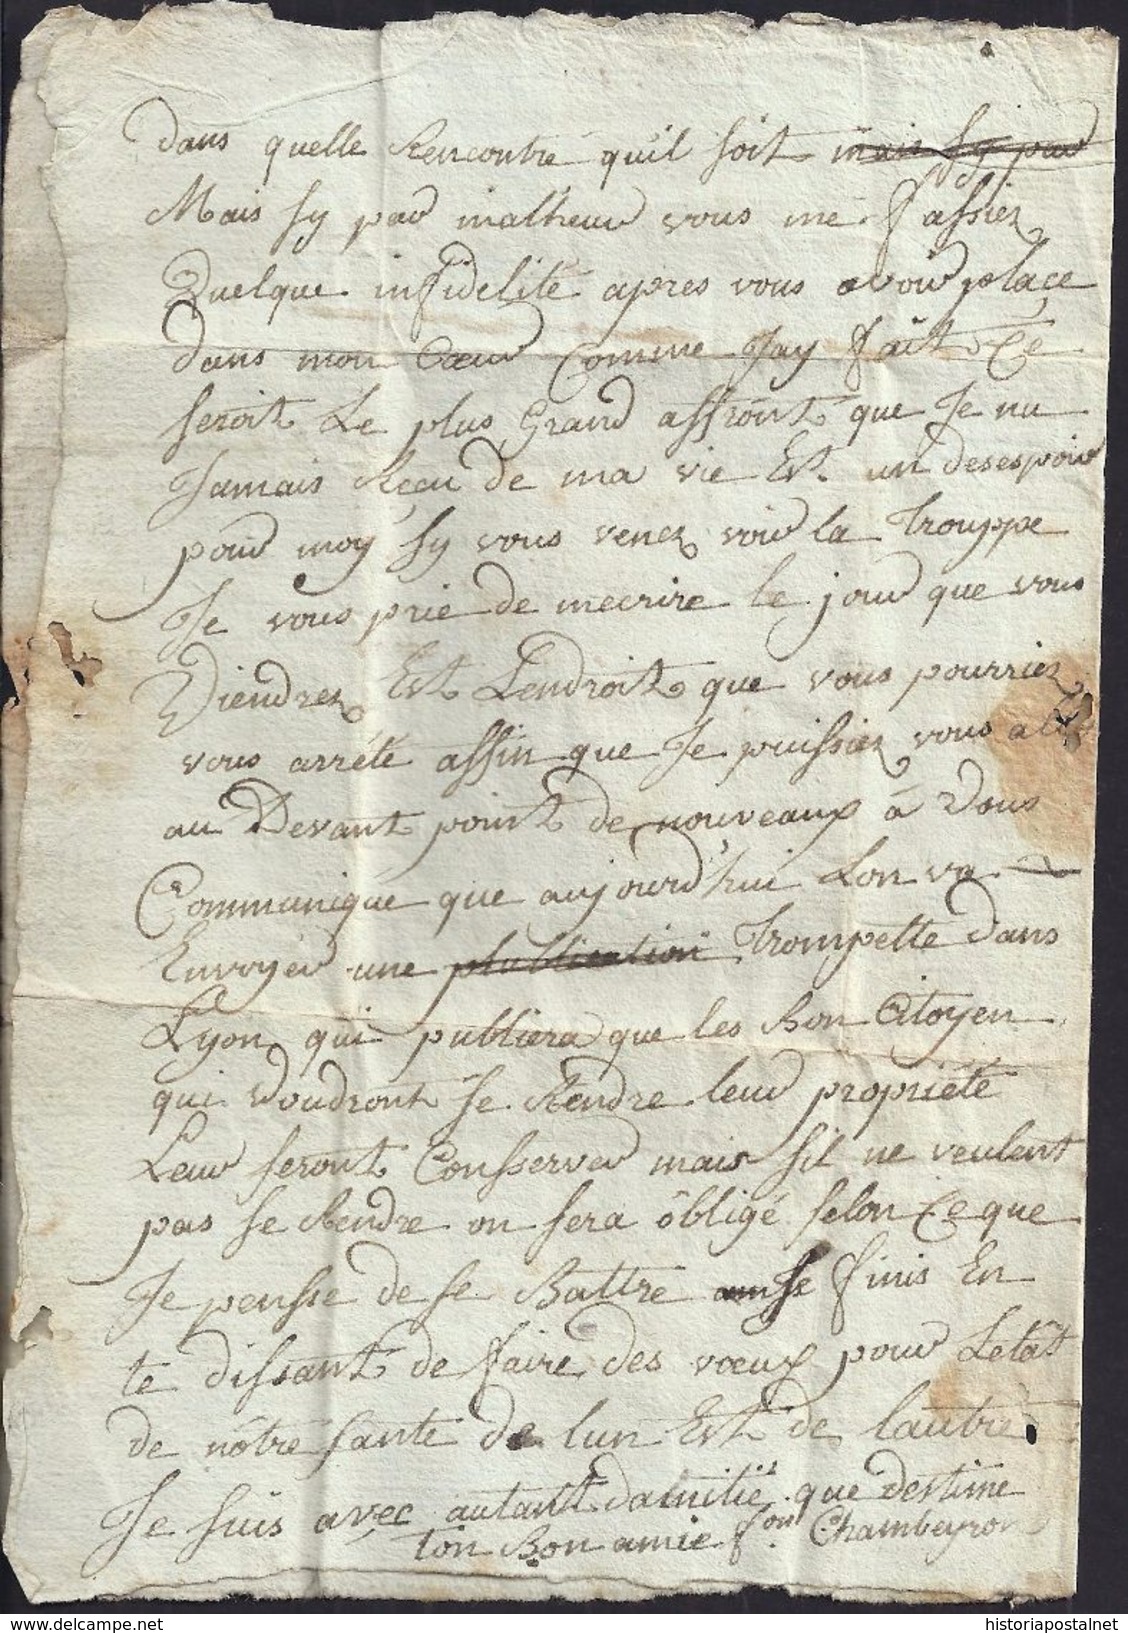 dans quelle Rencontre quil soit mais sy par
Mais sy par malheur vous me fassiez
Quelque infidelité apres vous avoir plaçe
dans mon Cœur Comme Jay fait Ce
seroit Le plus Grand affront que Je nu
Jamais Reçu de ma vie Est un desespoir
pour moy sy vous venez voir la Trouppe
Je vous prie de mecrire le jour que vous
Viendrez Est Lendroit que vous pourriez
vous arrété affin que Je puissiez vous
au Devant point de nouveaux à Vous
Communiqué que aujourd'hui Lon va
Envoyer une publication Trompette dans
Lyon qui publiera que les Bon Citoyen
qui Voudront se Rendre leur propriété
Leur seront Consserver mais sil ne veulent
pas se Rendre on sera ôbligé selon Ce que
Je pensse de se Battre finis En
te dissant de faire des vœux pour Letat
de nôtre sante de lun Est de lautre
Je suis avec autant damitié que destime
ton Bon amie fon Chambeyron
historiapostalnet
www.delcampe.net
historiapostalnet